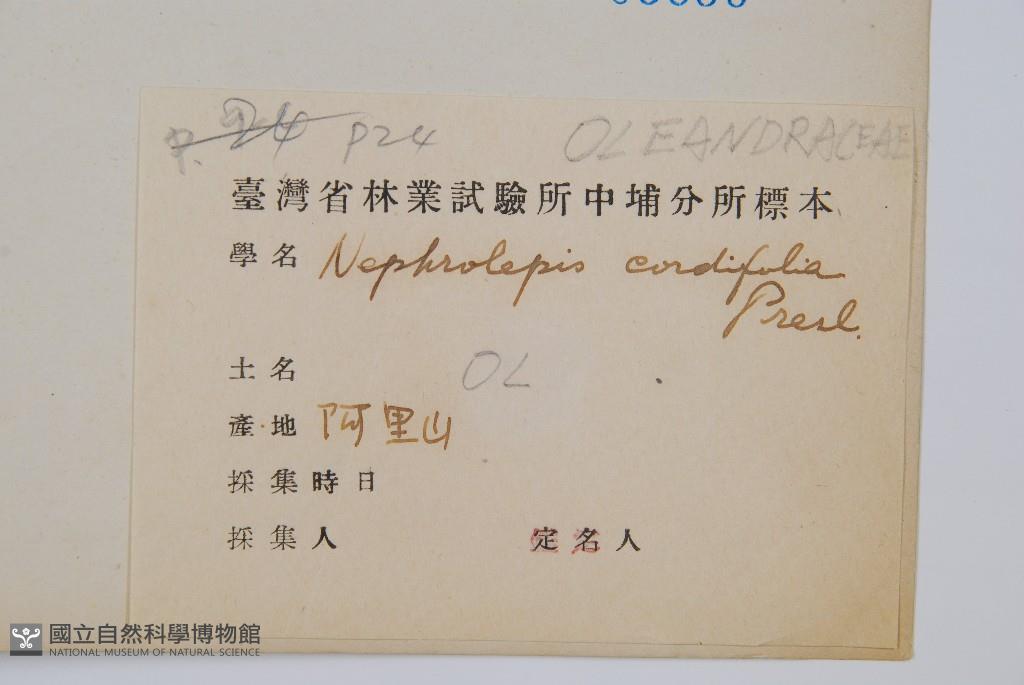 P24 OLEANDRACEAE
臺灣省林業試驗所中埔分所標本
學名 Nephrolepis cordifolia
Presl.
土名 OL
產地 阿里山
採集時日
採集人 定名人
國立自然科學博物館
NATIONAL MUSEUM OF NATURAL SCIENCE